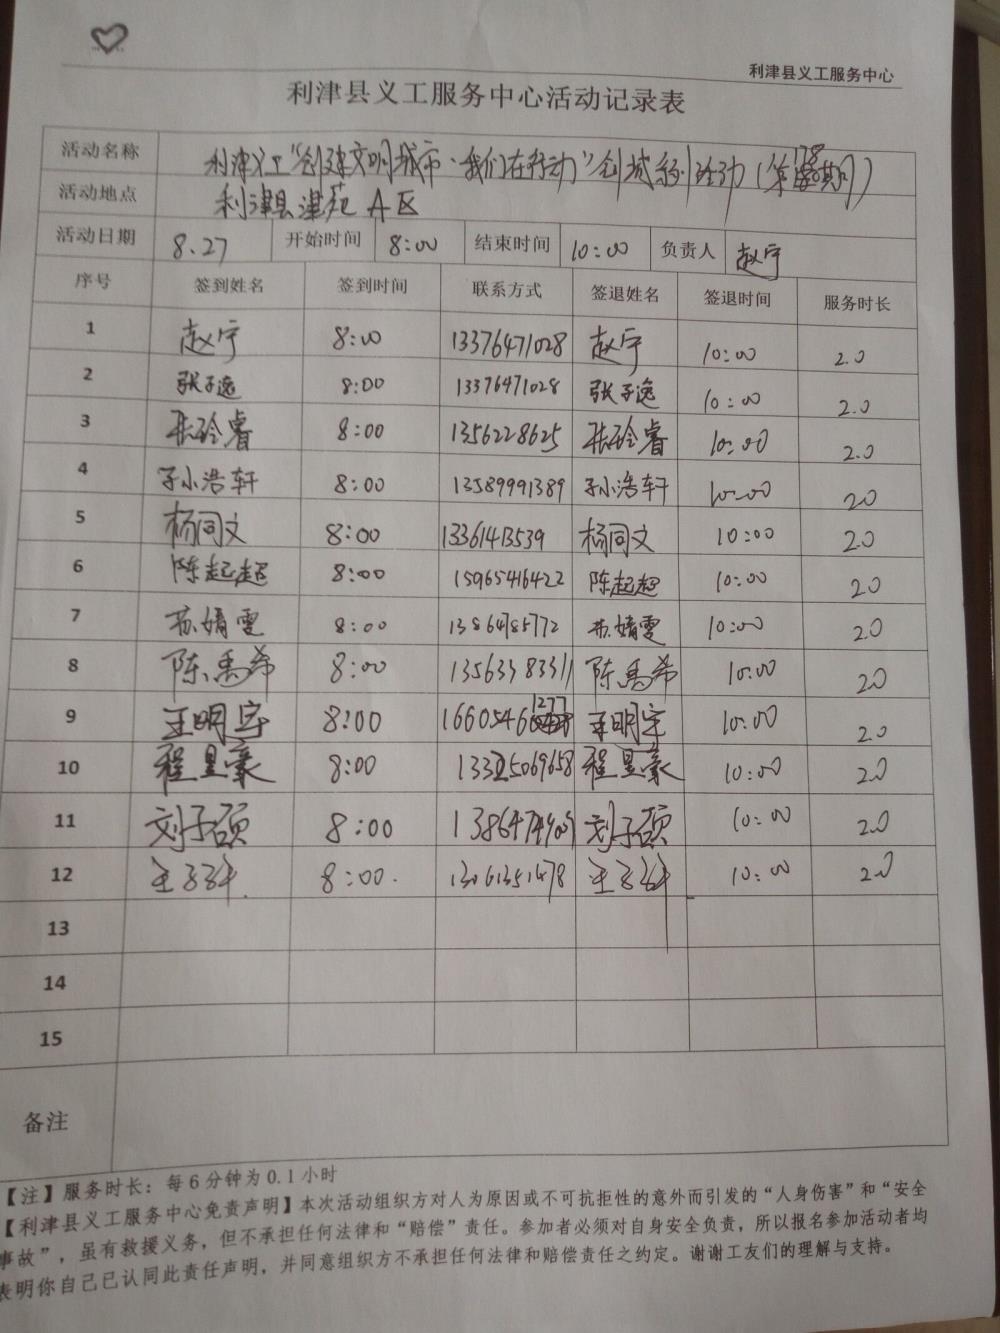 利津县义工服务中心
利津县义工服务中心活动记录表
活动名称 利津义工“创建文明城市·我们在行动”创城系列活动（第178期）
活动地点 利津县津苑A区
活动日期 8.27 开始时间 8:00 结束时间 10:00 负责人 赵宁
序号 签到姓名 签到时间 联系方式 签退姓名 签退时间 服务时长
1 赵宁 8:00 13376471028 赵宁 10:00 2.0
2 张子逸 8:00 13376471028 张子逸 10:00 2.0
3 张玲睿 8:00 1356228625 张玲睿 10:00 2.0
4 孙浩轩 8:00 13589991389 孙浩轩 10:00 2.0
5 杨同文 8:00 13361413539 杨同文 10:00 2.0
6 陈起超 8:00 15965416422 陈起超 10:00 2.0
7 苏婧雯 8:00 13864785772 苏婧雯 10:00 2.0
8 陈禹希 8:00 13563383311 陈禹希 10:00 2.0
9 王明宇 8:00 16605466 1277 王明宇 10:00 2.0
10 程昱豪 8:00 13325069658 程昱豪 10:00 2.0
11 刘子硕 8:00 13864774909 刘子硕 10:00 2.0
12 王 8:00. 13061351478 王 10:00 2.0
13
14
15
备注
【注】服务时长：每6分钟为0.1小时
【利津县义工服务中心免责声明】本次活动组织方对人为原因或不可抗拒性的意外而引发的“人身伤害”和“安全
事故”，虽有救援义务，但不承担任何法律和“赔偿”责任。参加者必须对自身安全负责，所以报名参加活动者均
表明你自己已认同此责任声明，并同意组织方不承担任何法律和赔偿责任之约定。谢谢工友们的理解与支持。